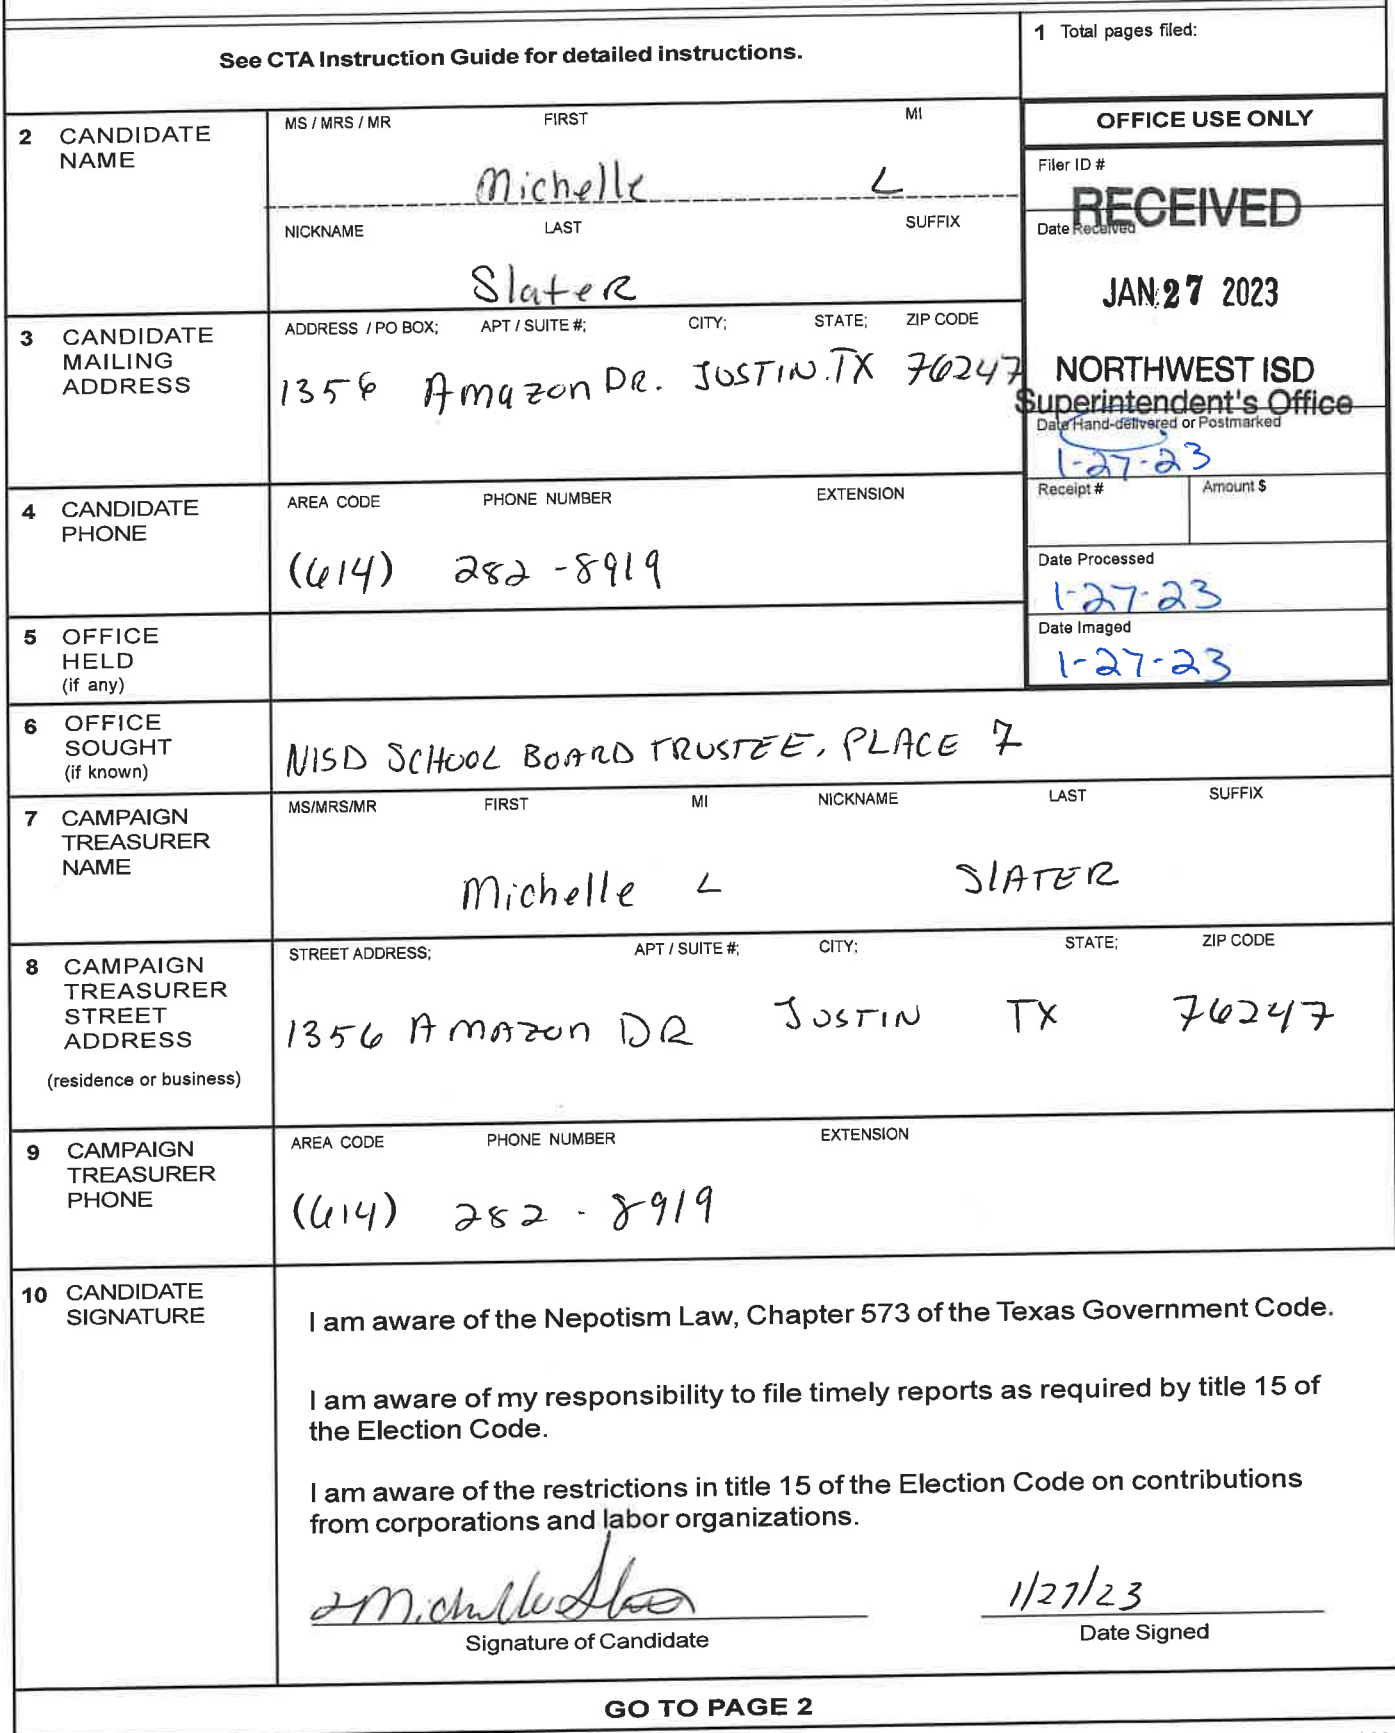 See CTA Instruction Guide for detailed instructions.
1 Total pages filed:
2 CANDIDATE NAME
MS / MRS / MR FIRST MI
Michelle L
NICKNAME LAST SUFFIX
Slater
OFFICE USE ONLY
Filer ID #
RECEIVED
Date Received
JAN 27 2023
NORTHWEST ISD
Superintendent's Office
Date Hand-delivered or Postmarked
1-27-23
Receipt # Amount $
Date Processed
1-27-23
Date Imaged
1-27-23
3 CANDIDATE MAILING ADDRESS
ADDRESS / PO BOX; APT / SUITE #; CITY; STATE; ZIP CODE
1356 Amazon DR. JUSTIN. TX 76247
4 CANDIDATE PHONE
AREA CODE PHONE NUMBER EXTENSION
(614) 282 - 8919
5 OFFICE HELD (if any)
6 OFFICE SOUGHT (if known)
NISD SCHOOL BOARD TRUSTEE, PLACE 7
7 CAMPAIGN TREASURER NAME
MS/MRS/MR FIRST MI NICKNAME LAST SUFFIX
Michelle L SlATER
8 CAMPAIGN TREASURER STREET ADDRESS
(residence or business)
STREET ADDRESS; APT / SUITE #; CITY; STATE; ZIP CODE
1356 AMAZON DR JUSTIN TX 76247
9 CAMPAIGN TREASURER PHONE
AREA CODE PHONE NUMBER EXTENSION
(614) 282 - 8919
10 CANDIDATE SIGNATURE
I am aware of the Nepotism Law, Chapter 573 of the Texas Government Code.
I am aware of my responsibility to file timely reports as required by title 15 of
the Election Code.
I am aware of the restrictions in title 15 of the Election Code on contributions
from corporations and labor organizations.
Michelle Slater 1/27/23
Signature of Candidate Date Signed
GO TO PAGE 2